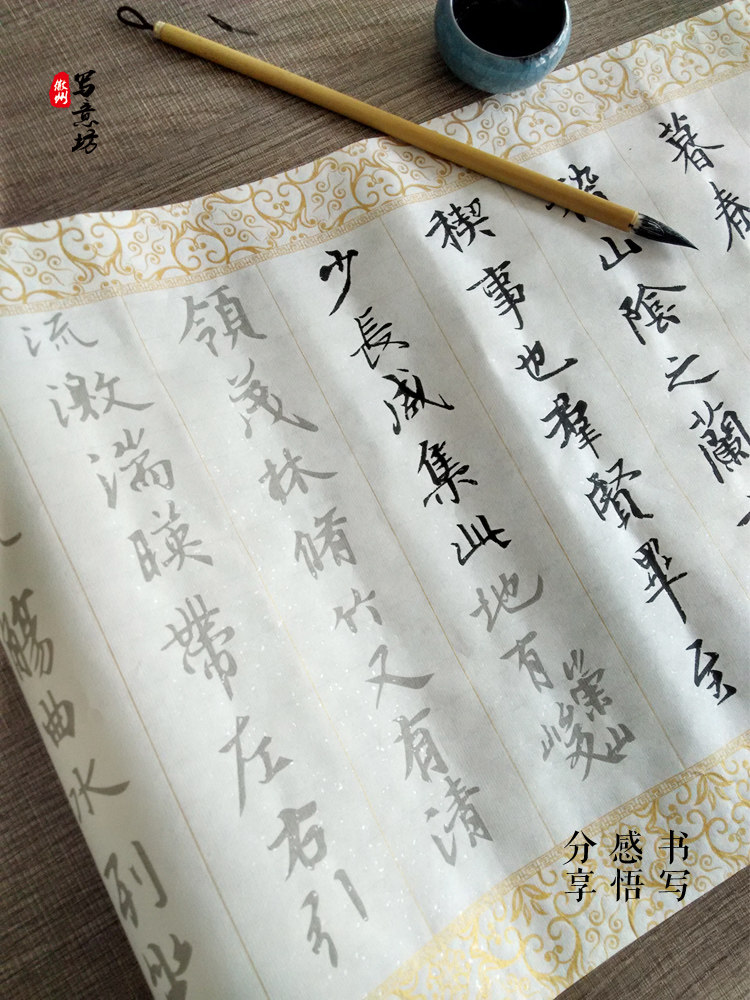 徽州
写意坊
暮春
稽山陰之蘭
稧事也羣賢畢至
少長咸集此地有崇山峻
領茂林脩竹又有清
流激湍暎帶左右引
觴曲水列坐
书写
感悟
分享